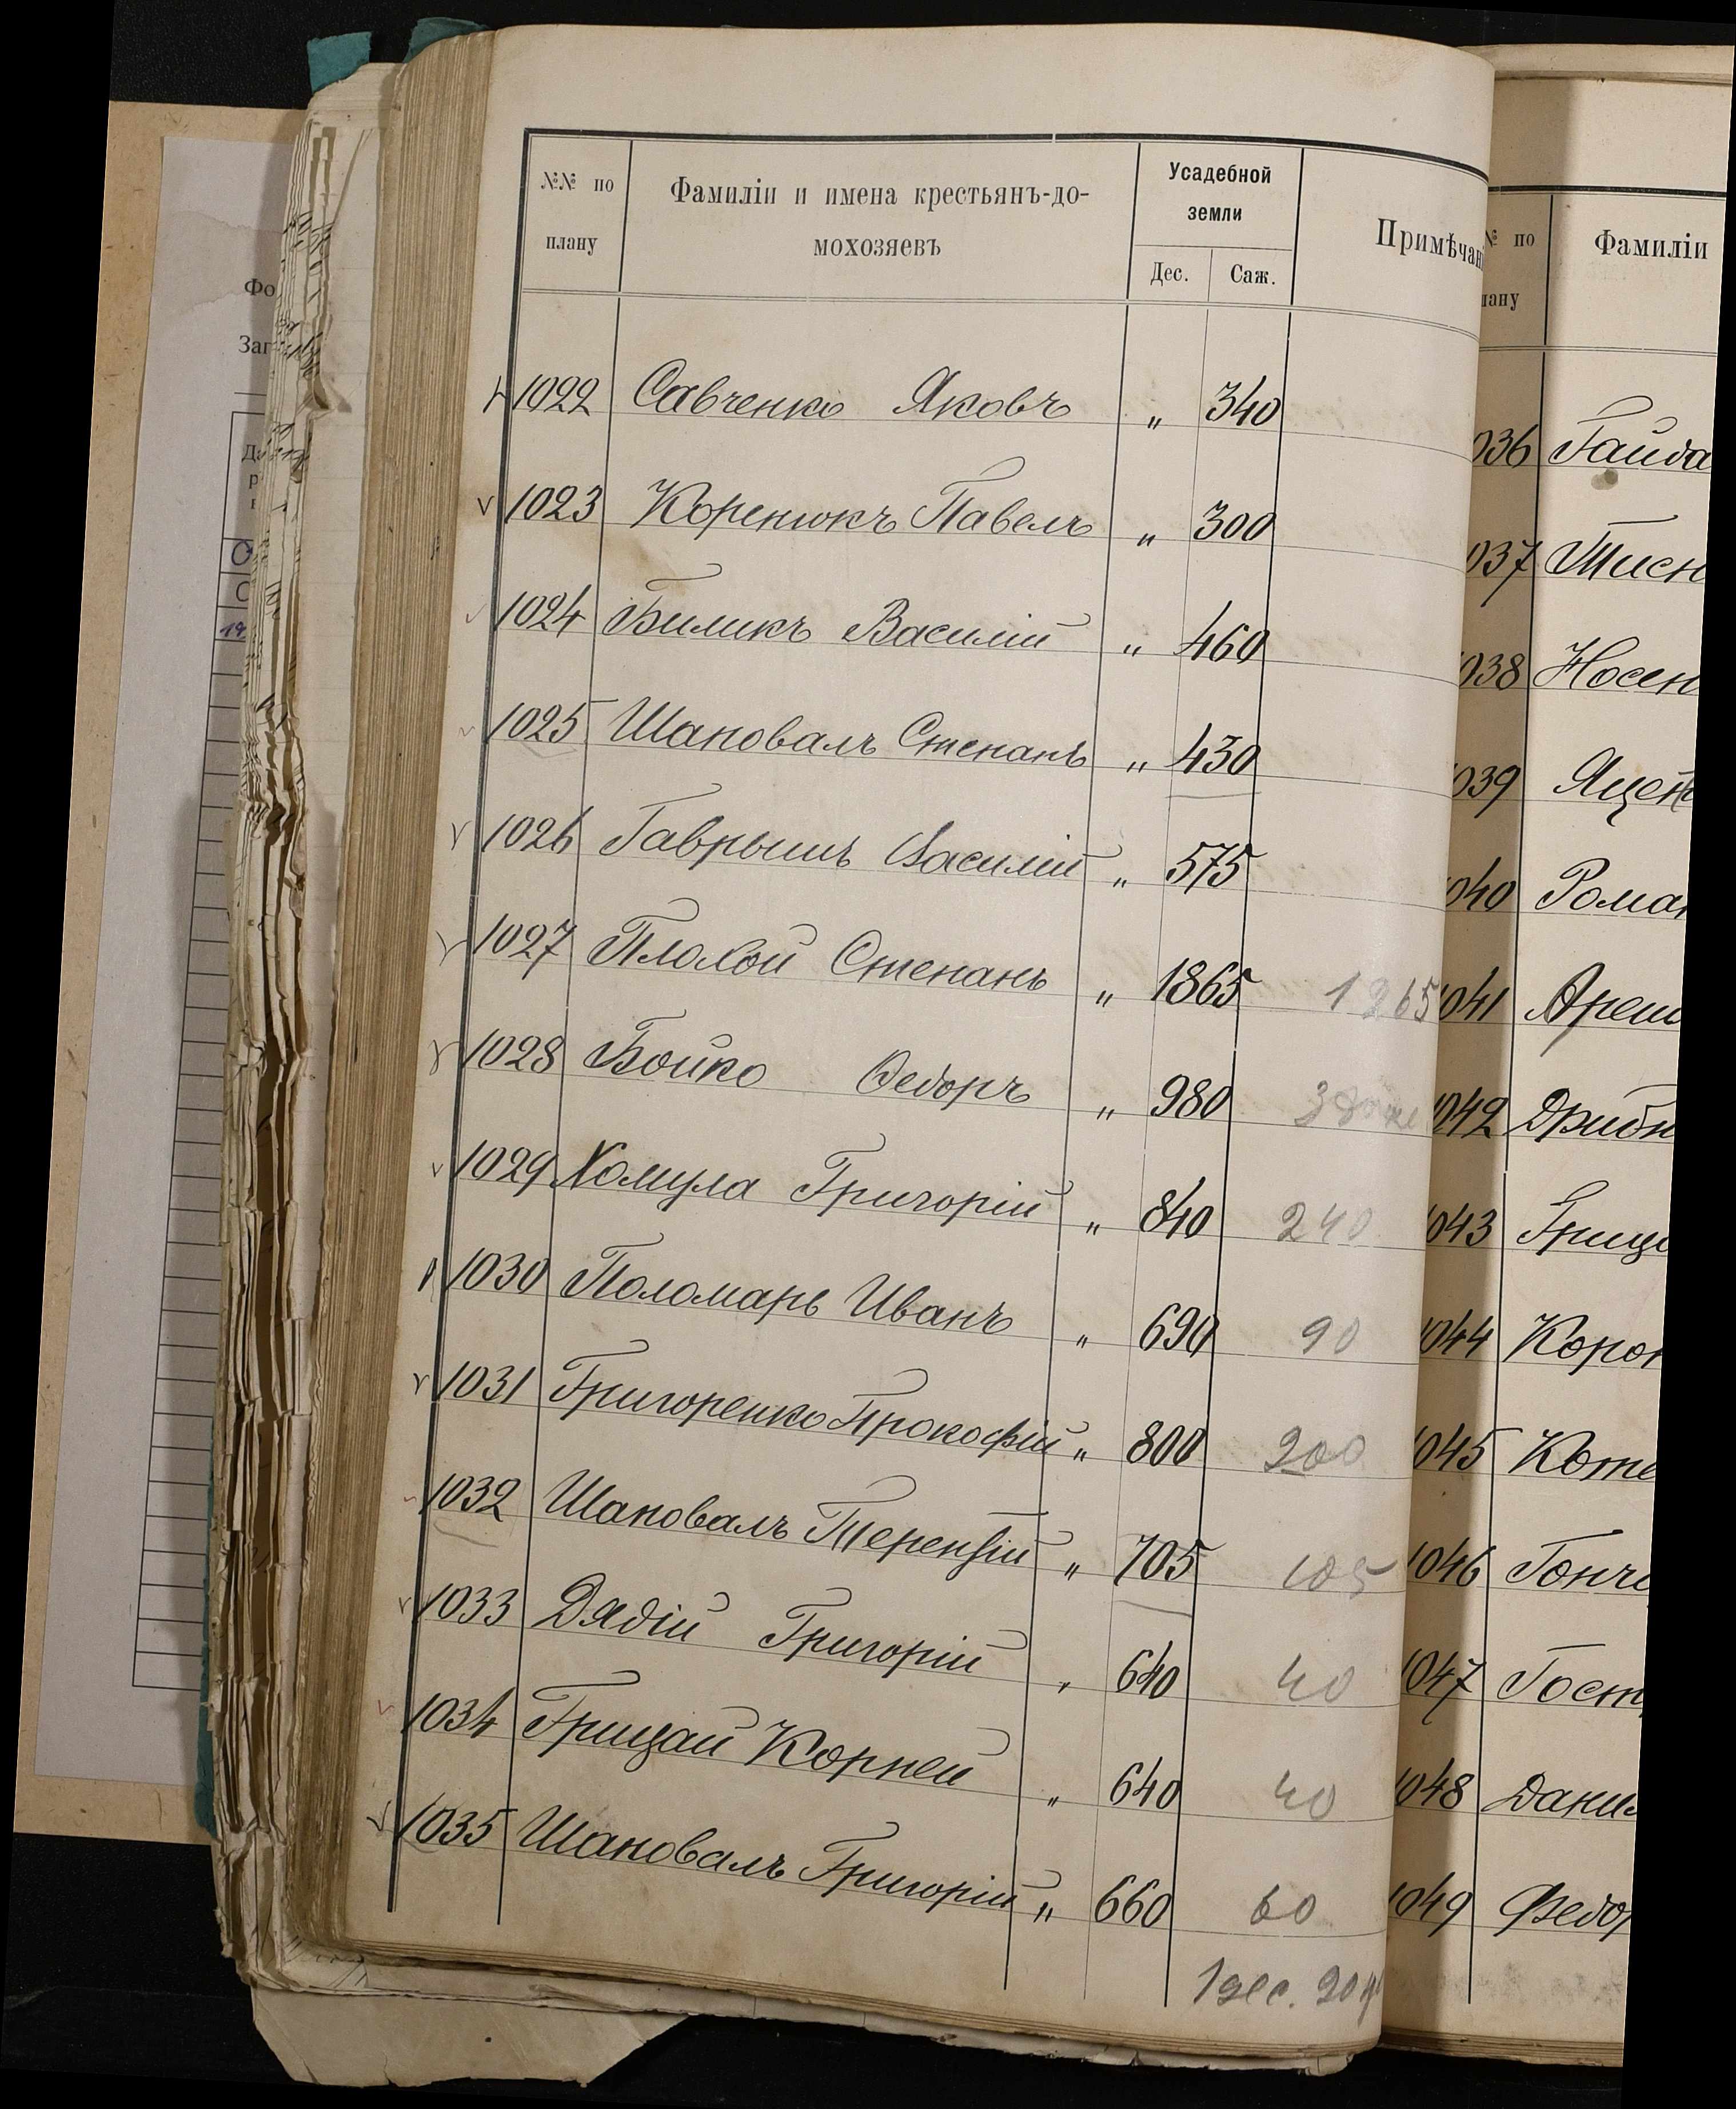 №№ по плану
Фамиліи и имена крестьянъ-домохозяевъ
Усадебной земли
Дес. Саж.
Примѣчан
1022 Савченко Яковъ " 340
1023 Коренюкъ Павелъ " 300
1024 Биликъ Василій " 460
1025 Шаповалъ Степанъ " 430
1026 Гаврышъ Василій " 575
1027 Плохой Степанъ " 1865 1265
1028 Бойко Ѳедоръ " 980
1029 Хомула Григорій " 840 240
1030 Поломарь Иванъ " 690 90
1031 Григоренко Прокофій " 800 200
1032 Шаповалъ Терентій " 705 105
1033 Дядій Григорій " 640 40
1034 Грицай Корней " 640 40
1035 Шаповалъ Григорій " 660 60
1 дес.
№ по
лану
Фамиліи
036 Гайда
037 Тисн
038 Носен
039 Яцен
040 Роман
1041 Ареш
1042 Дрибн
1043 Гриц
1044 Корон
1045 Коте
1046 Гонч
1047 Гост
1048 Данил
1049 Федо
Фо
Заг